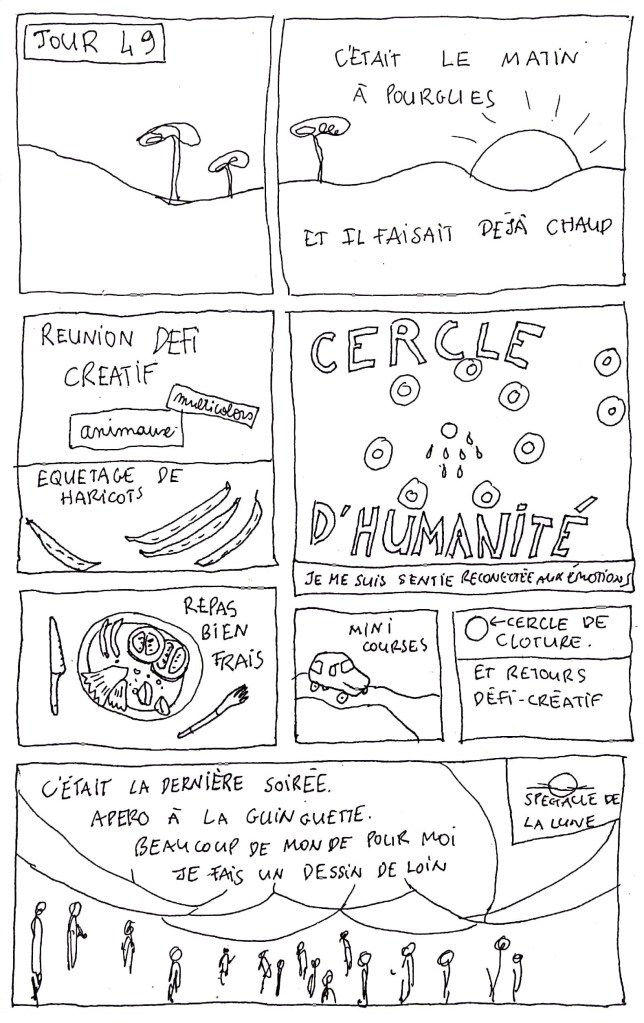 JOUR 49
C'ÉTAIT LE MATIN
À POURGUES
ET IL FAISAIT DÉJÀ CHAUD
REUNION DEFI
CREATIF
multicolors
animaux
EQUETAGE DE
HARICOTS
CERCLE
D'HUMANITÉ
JE ME SUIS SENTIE RECONECTÉE AUX ÉMOTIONS
REPAS
BIEN
FRAIS
MINI
COURSES
←CERCLE DE
CLOTURE.
ET RETOURS
DÉFI-CRÉATIF
C'ÉTAIT LA DERNIÈRE SOIRÉE.
APERO À LA GUINGUETTE.
BEAUCOUP DE MONDE POUR MOI
JE FAIS UN DESSIN DE LOIN
SPECTACLE DE
LA LUNE